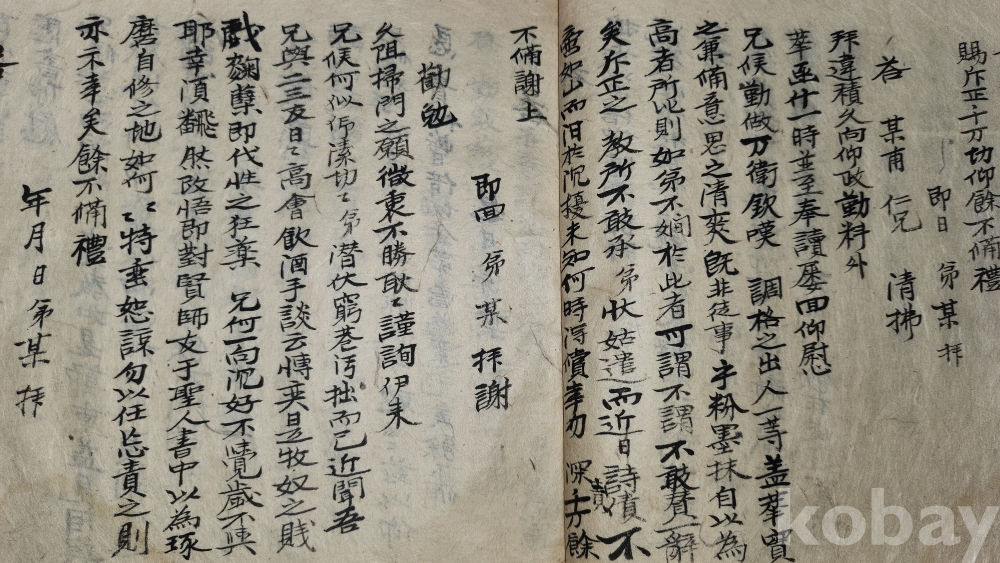 賜斤正千万切仰餘不備禮
即日 弟某 拜
答 某甫 仁兄 清拂
拜違積久向仰政勤料外
華函廿一時並至奉讀屡回仰慰
兄候勤做万衛欽嘆 調格之出人一等盖華實
之兼備意思之清爽既非徒事乎粉墨抹自以為
高者所比則如弟不嫺於此者可謂不謂不敢賛一辭
矣斤正之教所不敢承 弟狀姑遣而近日詩債不
如山而汩於冗擾未知何時得償幸勿 深 餘
不備謝上
即回 弟某 拜謝
勸勉
久阻掃門之願微衷不勝耿〻謹詢伊来
兄候何似仰溸切〻弟潛伏窮巷汚拙而已近聞吾
兄與二三友日〻高會飲酒手談云愽奕是牧奴之賤
戲麴蘖即代性之狂藥 兄何一向沉好不覺歲不與
耶幸湏飜然改悟即對賢師友于聖人書中以為琢
磨自修之地如何〻〻特垂恕諒勿以任忘責之則
亦不幸矣餘不備禮
年月日弟某 拜
kobay